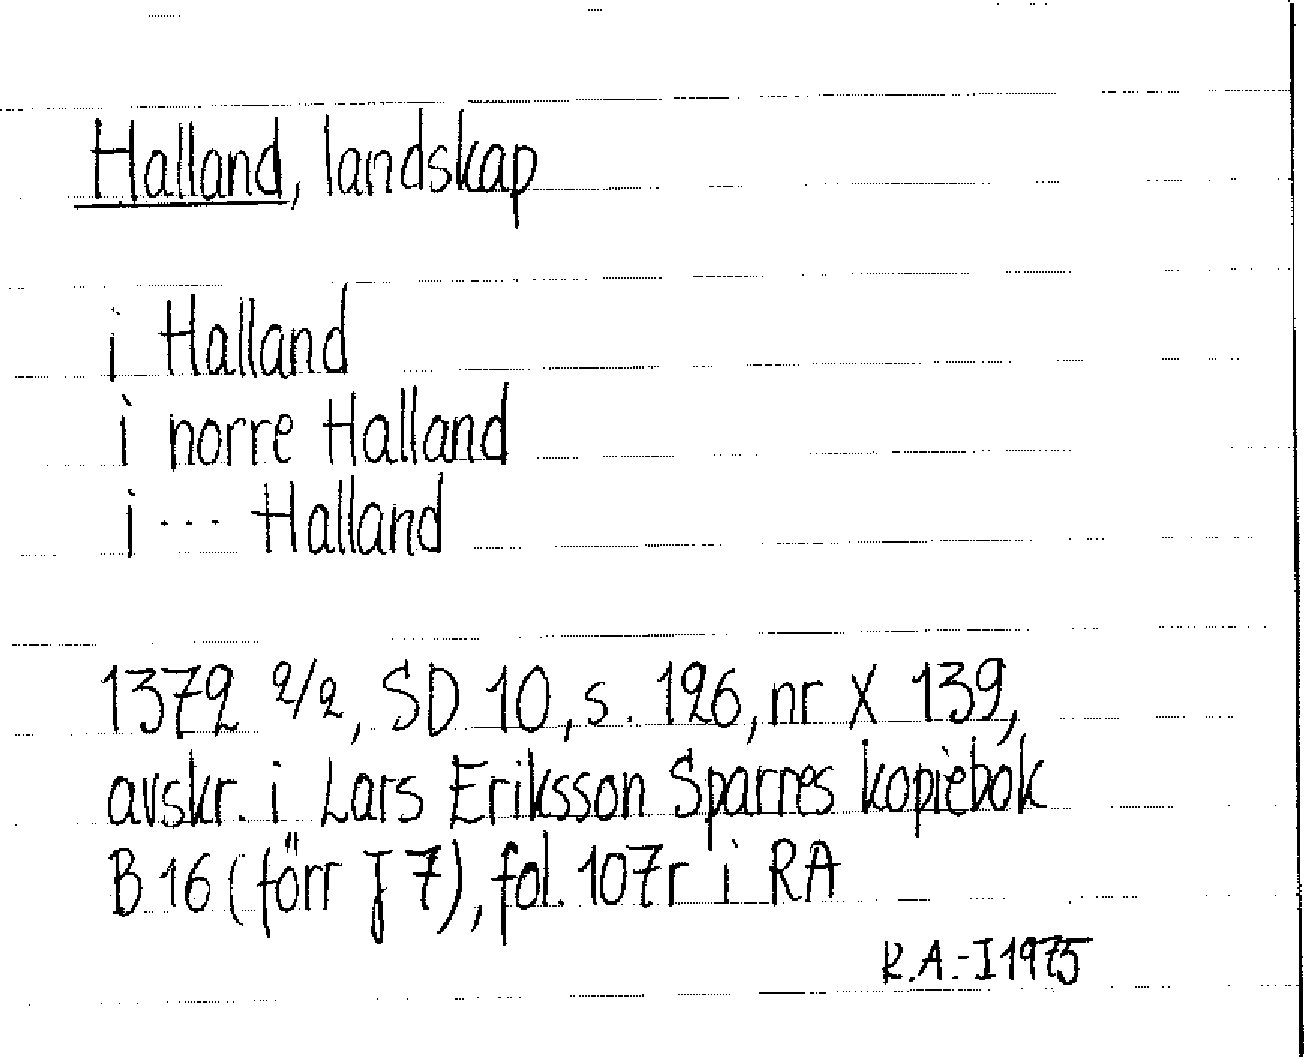 Halland, landskap
i Halland
i norre Halland
i --- Halland
1372 2/2, SD 10, s. 126, nr X 139,
avskr. i Lars Eriksson Sparres kopiebok
B 16 (förr J 7), fol. 107r i RA
R.A.-I 1975